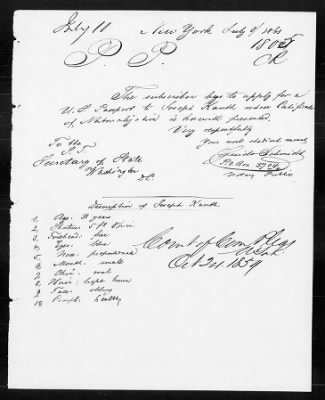 July 11 New York July 9 1860
P. P. 180
The subscriber begs to apply for a
U.S. Passport to Joseph Kauth whose Certificate
of Naturalization is herewith presented.
Very respectfully
Your most obedient servant
Guido Schmidt
Notary Public
To the
Secretary of State
Washington
D.C.
Description of Joseph Kauth
1. Age: years
2. Stature: 5 ft
3. Forehead:
4. Eyes: blue
5. Nose: proportioned
6. Mouth: small
7. Chin: oval
8. Hair: light brown
9. Face: oblong
10. healthy
Court of Com Pleas
Oct 24 1859